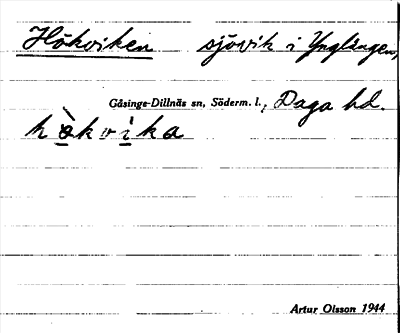 Hökviken sjövik i Ynglängen,
Gåsinge-Dillnäs sn, Söderm. l., Daga hd.
hò̲kvì̲ka
Artur Olsson 1944